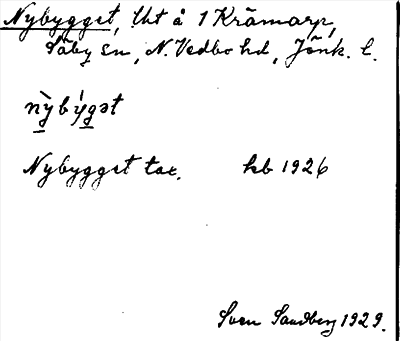 Nybygget, Uht å 1 Krämarp,
Säby sn, N. Vedbo hd, Jönk. l.
nỳbýgət
Nybygget tax. hb 1926
Sven Sandberg 1929.